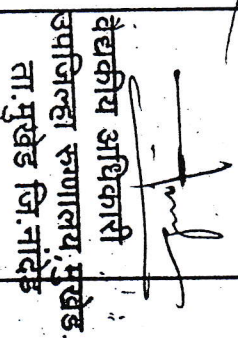 वैद्यकीय अधिकारी
उपजिल्हा रुग्णालय, मुखेड.
ता.मुखेड जि.नांदेड